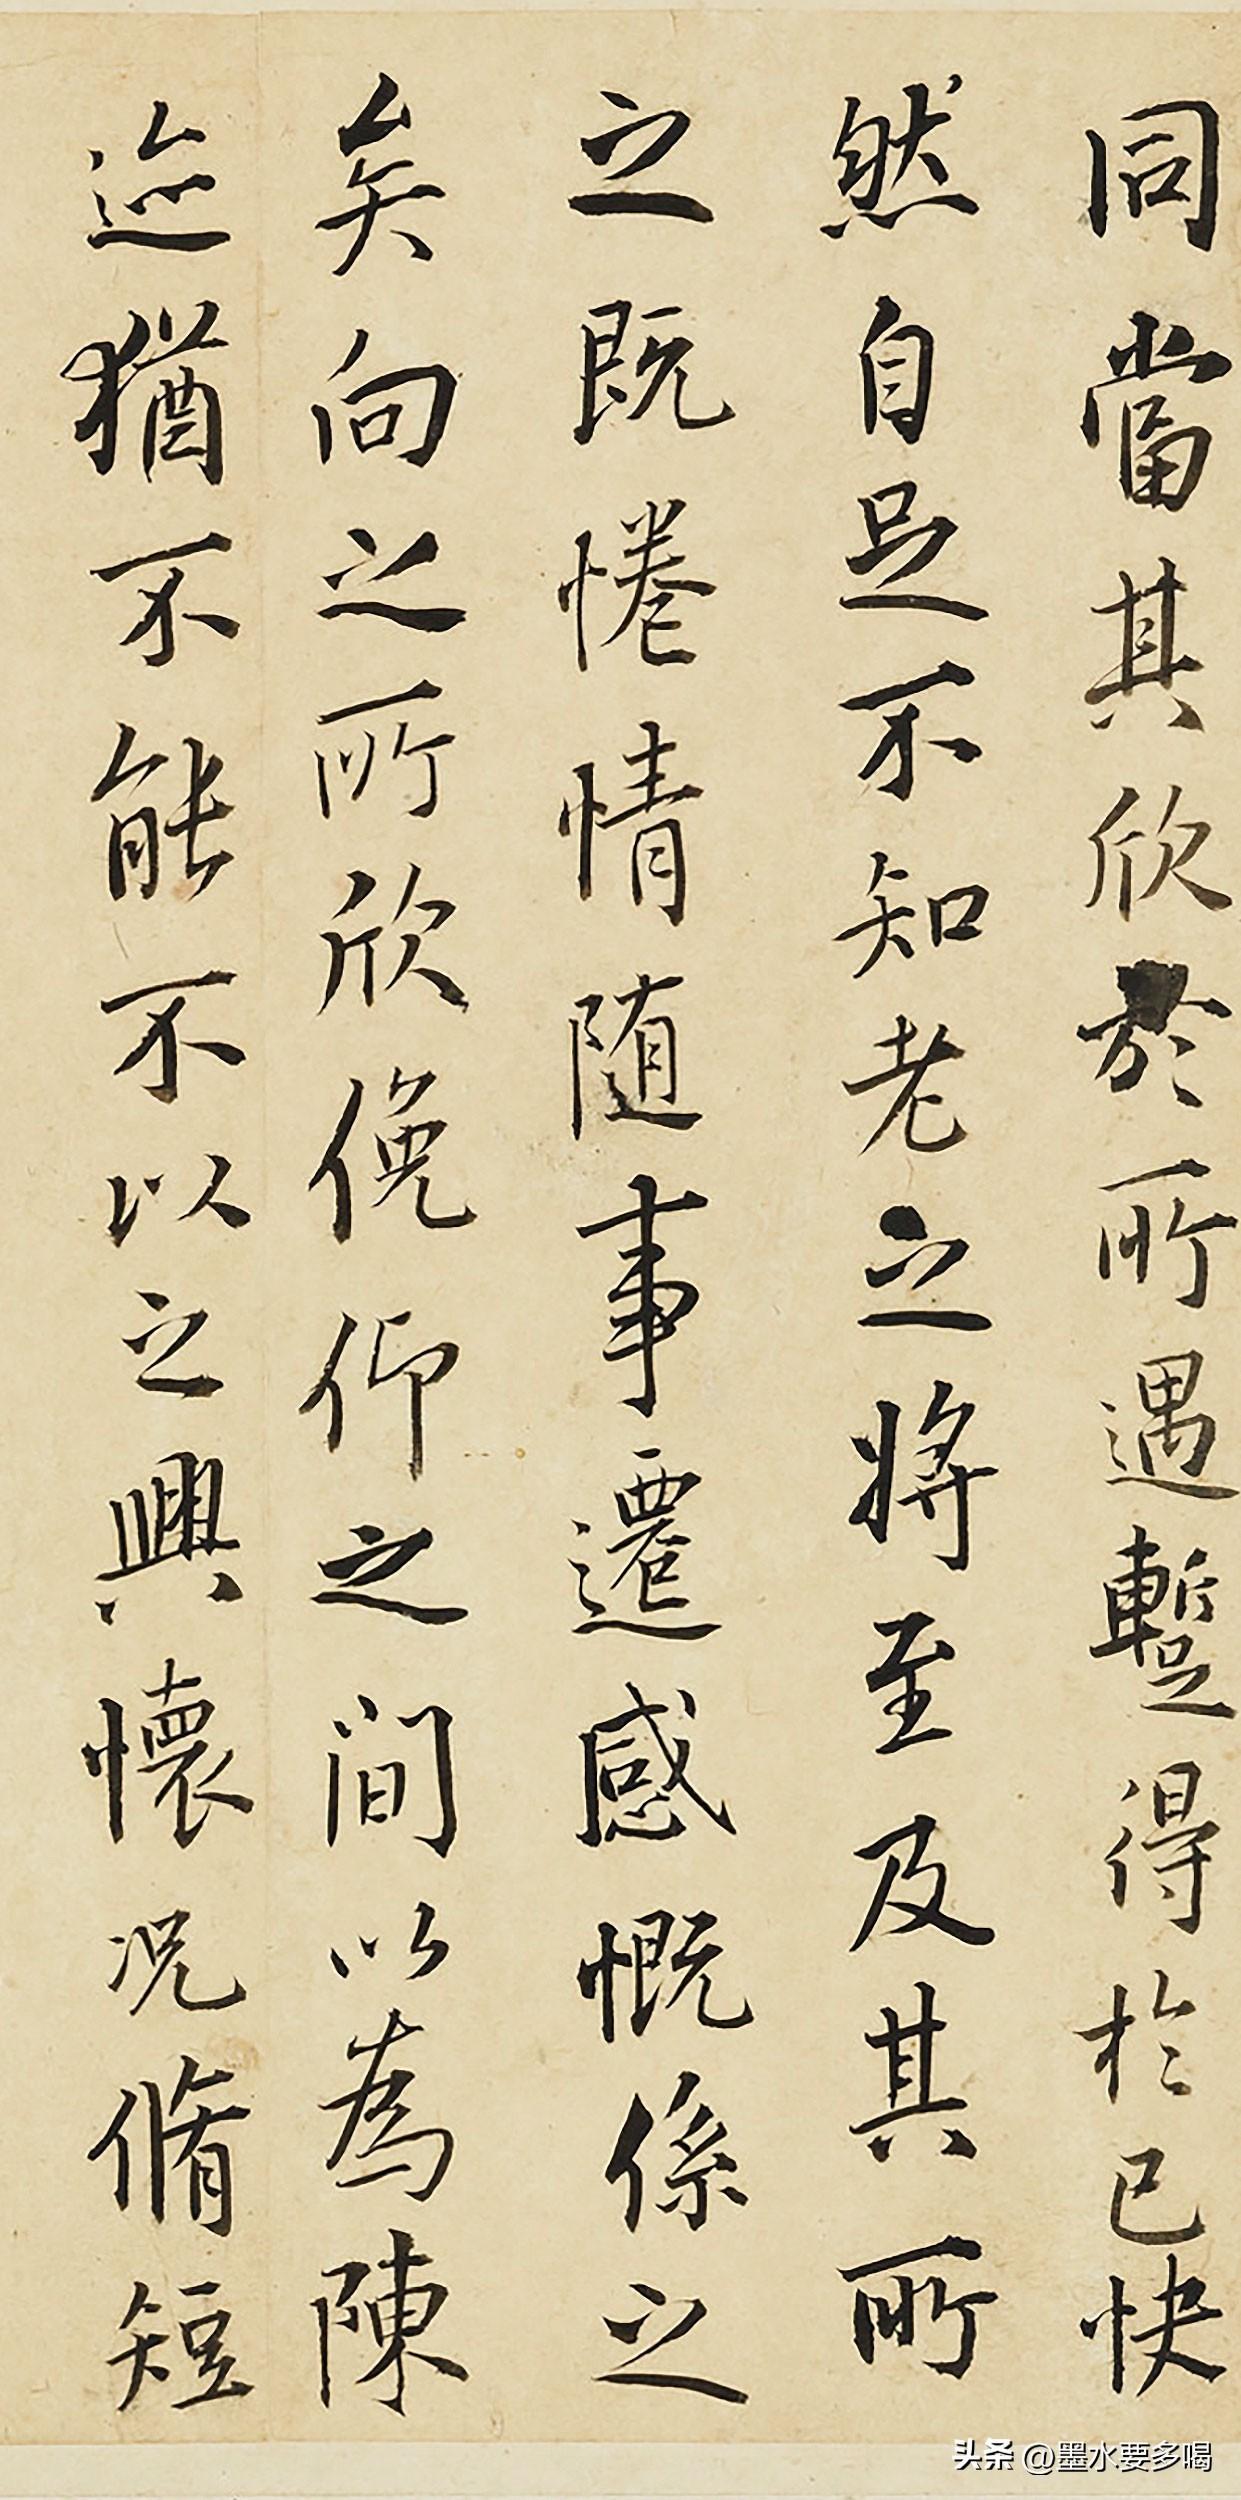 同當其欣於所遇暫得於己快
然自足不知老之將至及其所
之既惓情随事遷感慨係之
矣向之所欣俛仰之間以為陳
迹猶不能不以之興懷况脩短
头条 @墨水要多喝